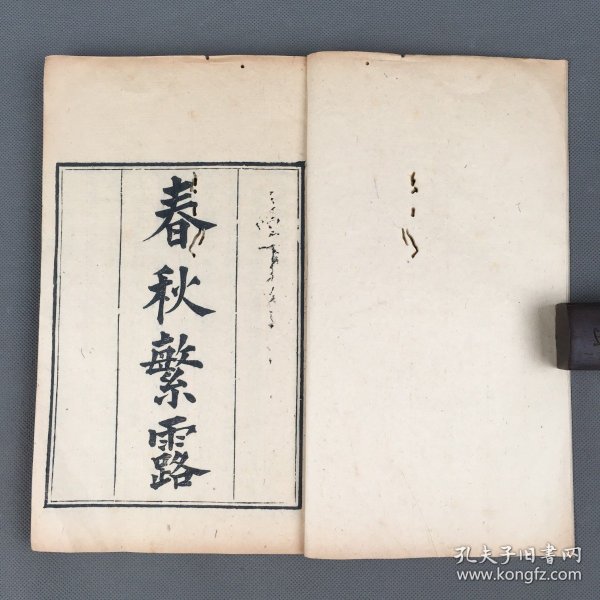 春秋繁露
孔夫子旧書网
www.kongfz.com